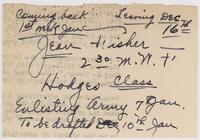 Coming back Leaving DEC 16th
1st wk Jan
Jean Fisher
2 30 M.W.F
Hodges Class
Enlisting Army 7 Jan.
To be drafted 10th Jan